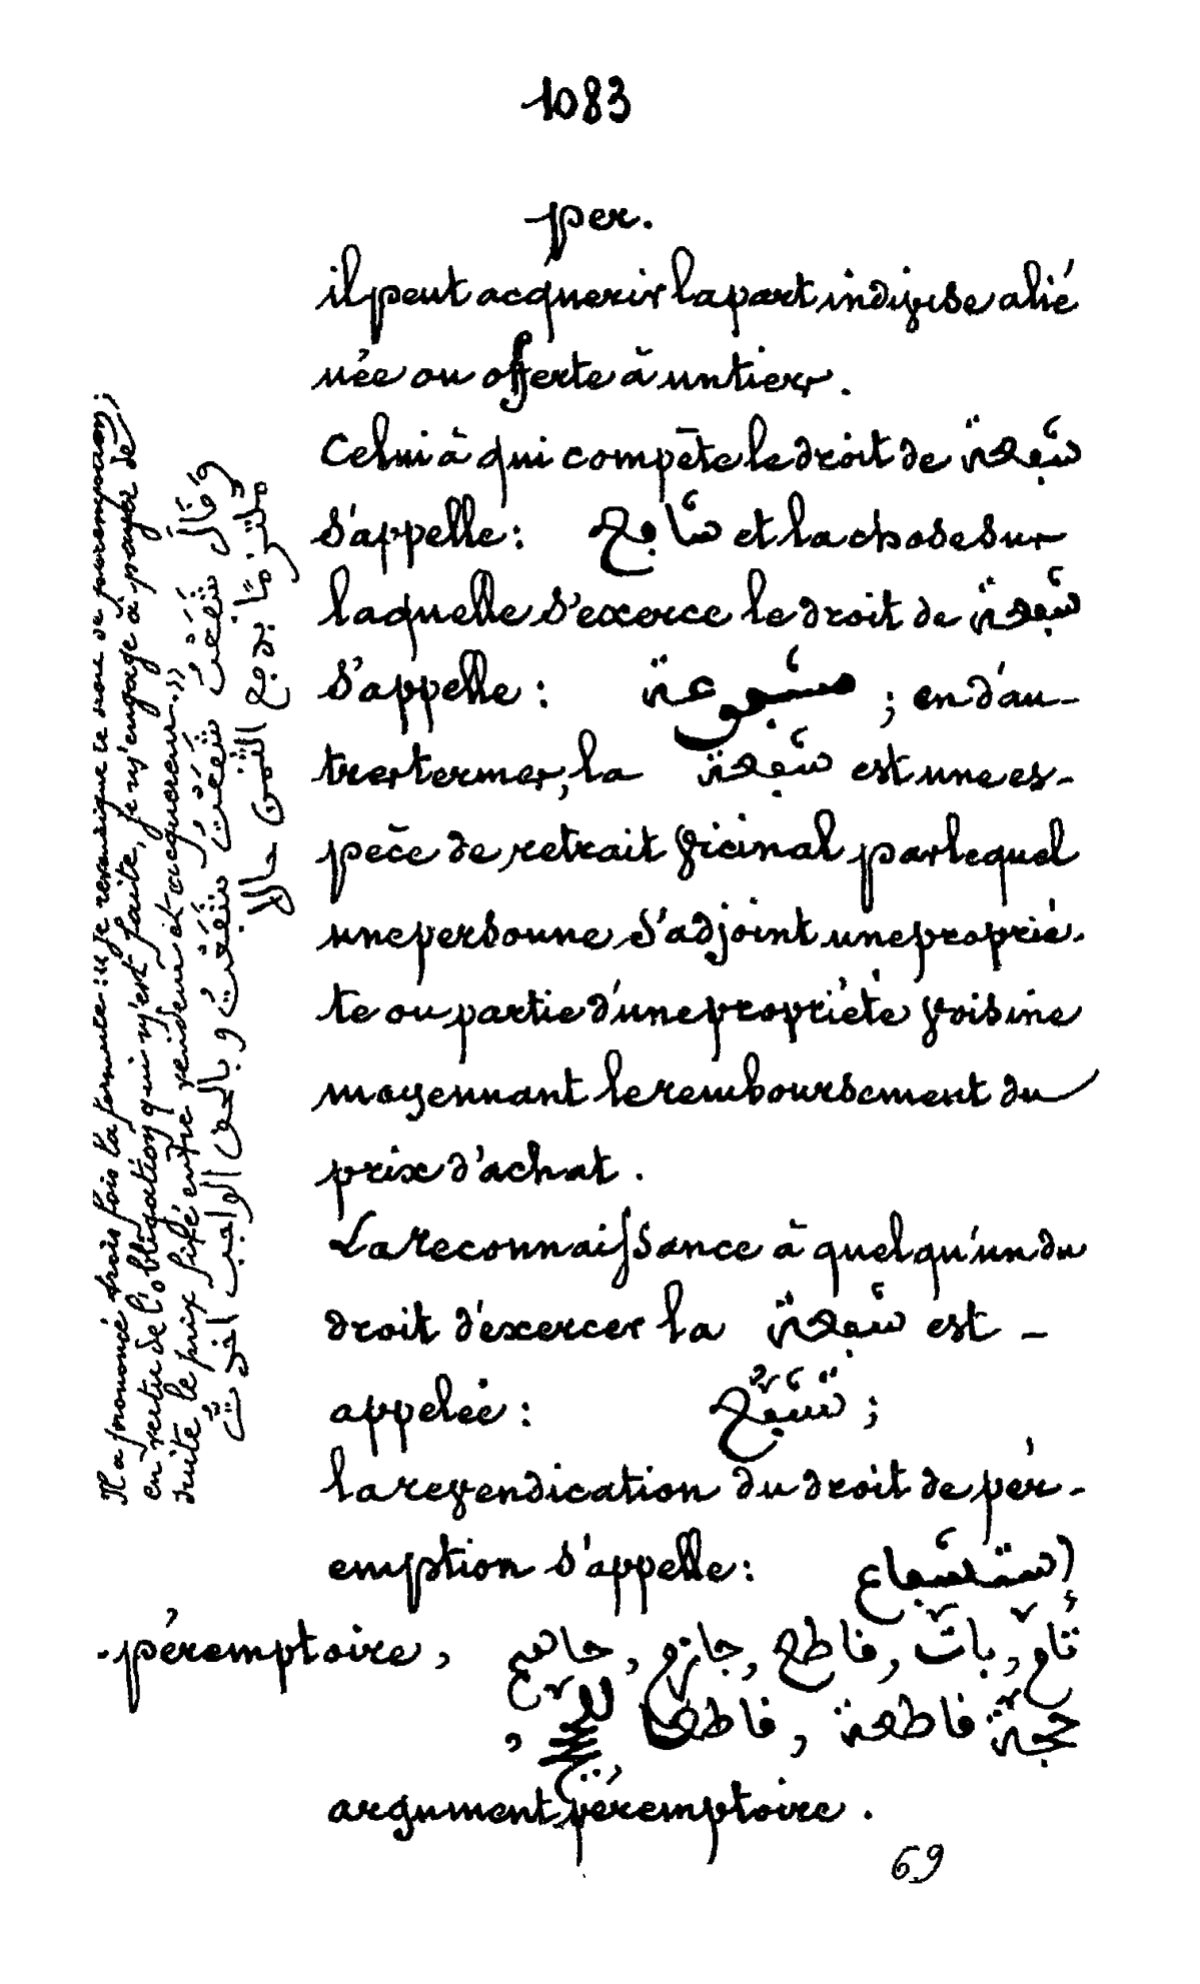 1083
per.
il peut acquerir la part indivise alié
née ou offerte à un tiers.
Celui à qui compète le droit de شفعة
s'appelle : شافع et la chose sur
laquelle s'exerce le droit de شفعة
s'appelle : مشفوعة ; en d'au-
tres termes, la شفعة est une es-
pèce de retrait vicinal par lequel
une personne s'adjoint une proprié-
té ou partie d'une propriété voisine
moyennant le remboursement du
prix d'achat.
La reconnaissance à quelqu'un du
droit d'exercer la شفعة est -
appelée : تشفيع ;
la revendication du droit de pér-
emption s'appelle : استشفاع
péremptoire, حاسم , جازم , قاطع , بات , تام
حجة قاطعة , قاطع
argument péremptoire.
69
Il a prononcé trois fois la formule : « je revendique le droit de préemption ;
en vertu de l'obligation qui m'est faite, je m'engage à payer de
suite le prix fixé entre vendeur et acquéreur. »
وقال شفعت شفعت شفعت وبالحق الواجب اخذت
ملتزما بدفع الثمن حالا